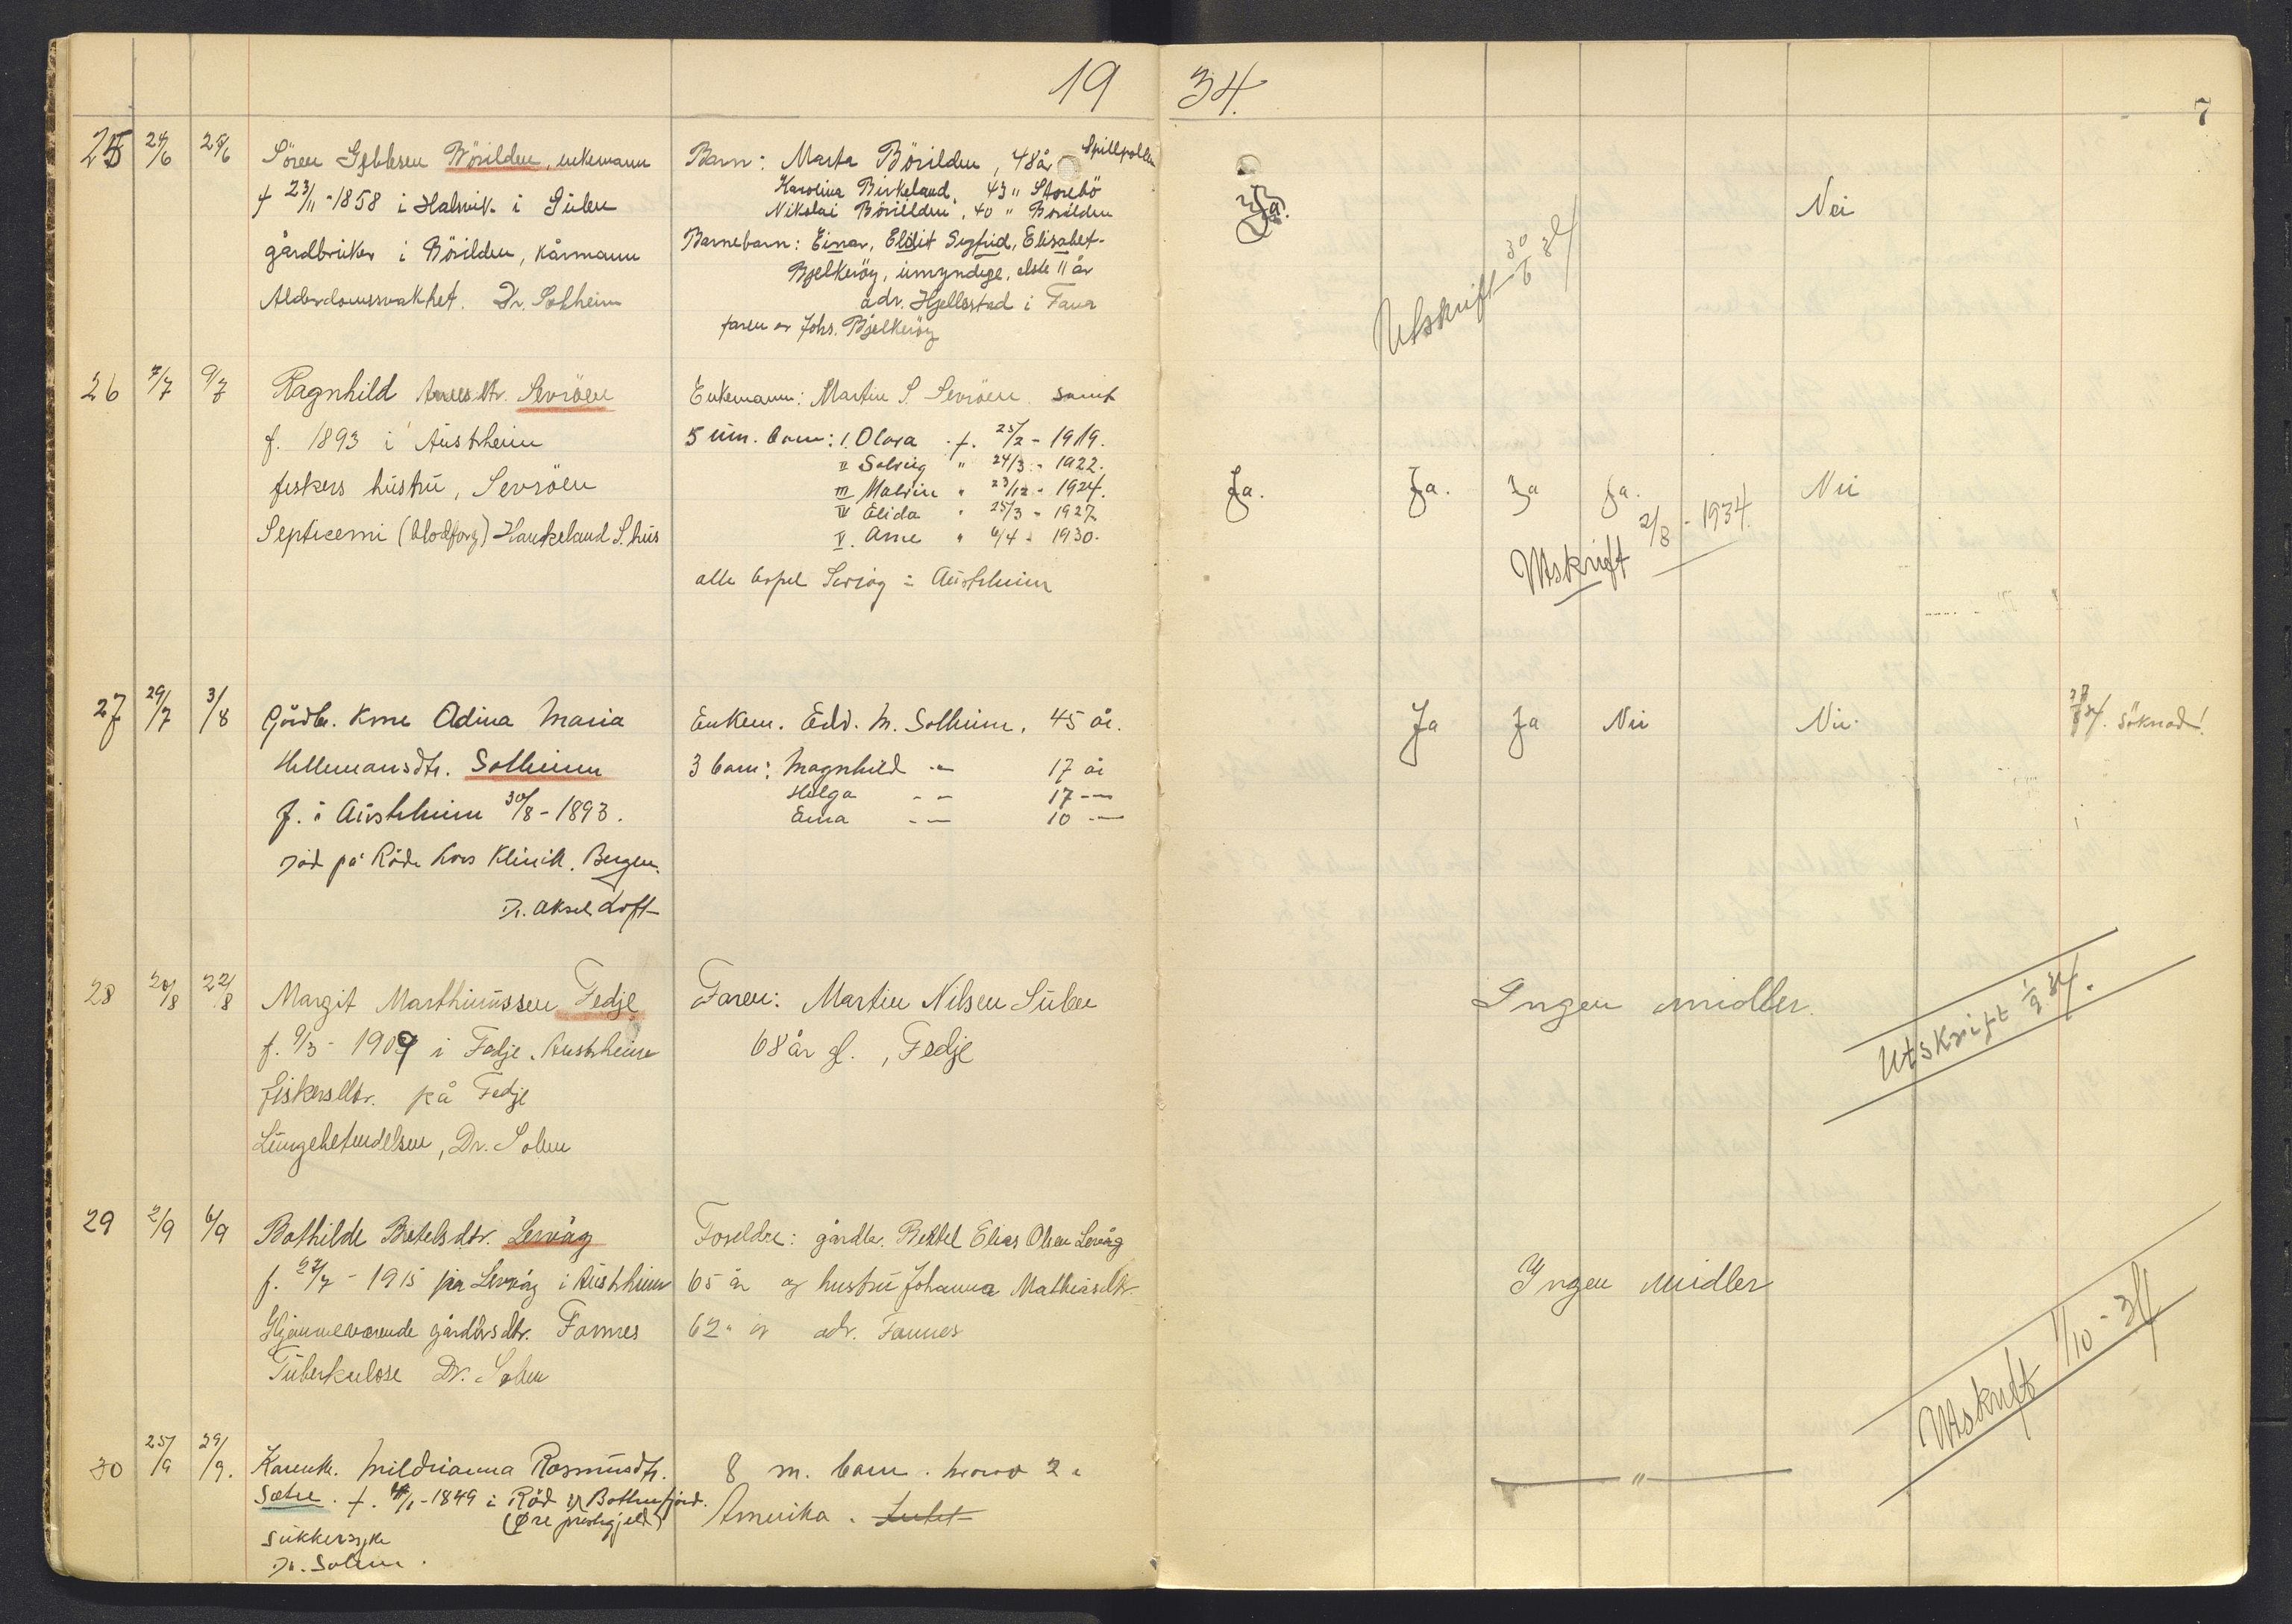 19 34.
7
25 24/6 25/6 Sören Gjblesen Börilden, enkemann
f 23/11-1858 i Halsvik i Sulen
gårdbruker i Börilden, kårmann
Alderdomssvakhet. Dr. Solheim
Barn: Marta Börilden, 48 år Spillpollen
Karolina Birkeland, 43 " Storebö
Nikolai Börilden, 40 " Börilden
Barnebarn: Einar, Eldit Sigfrid, Elisabet
Bjelkeröy, umyndige, elste 11 år
adr. Hjellestad i Fana
faren er Johs. Bjelkeröy
Ja. Nei
Utskrift 30/6 34
26 7/7 9/7 Ragnhild dtr. Sevröen
f. 1893 i Austrheim
fiskers hustru, Sevröen
Septicemi (blodforg) Haukeland S.hus
Enkemann: Martin S. Sevröen samt
5 um. barn: I. Olava f. 25/2 - 1919.
II Solveig " 24/3 - 1922.
III Malvin " 23/12 - 1924.
IV Elida " 25/3 - 1927
V. Arne " 6/4 - 1930.
alle bopel Sevröy i Austrheim
Ja. Ja. Ja Ja. Nei
Utskrift 2/8 - 1934.
27 29/7 3/8 Gårdbr. kone Adina Maria
Hellemansdtr. Solheim
f. i Austrheim 30/8 - 1893.
Död på Röde Kors Klinik. Bergen.
Dr. Aksel Loft
Enkem. Edv. M. Solheim, 45 år.
3 barn: Magnhild - " - 17 år
Helga - " - 17 - " -
Erna - " - 10 - " -
Ja Ja Nei Nei
34. söknad!
28 20/8 22/8 Margit Marthinussen Fedje
f. 9/3 - 1909 i Fedje, Austrheim
fiskersdtr. på Fedje
Lungebetendelsen, Dr. Solem
Faren: Martin Nilsen Sulen
68 år gl., Fedje
Ingen midler.
Utskrift 1/9 34.
29 2/9 6/9 Bothilde Bertelsdtr. Lervåg
f. 27/7 - 1915 på Lervåg i Austrheim
Hjemmeværende gårdbrsdtr. Fonnes
Tuberkulose Dr. Solem
Foreldre: gårdbr. Berthel Elias Olsen Lervåg
65 år og hustru Johanna Mathiasdtr.
62 " og adr. Fonnes
Ingen midler
Utskrift 1/10 - 34
30 25/9 29/9. Karenk. Mildrianna Rasmusdtr.
Sætre. f. /1 - 1849 i Röd i Bottenfjord.
(Øre prestegjeld)
Sukkersyke
Dr. Solem.
8 m. barn. hvorav 2 i
Amerika.
— " —